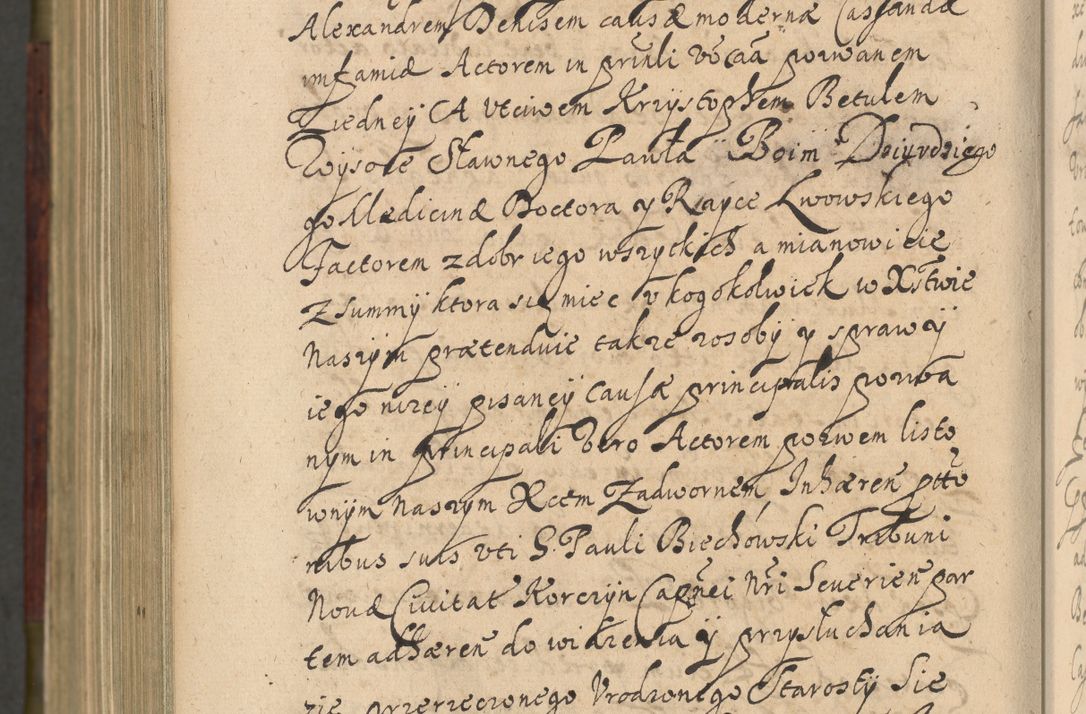 Alexandrem Denisem causæ modernæ Cassandæ
infamiæ Actorem in prinli vocaa pozwanem
Ziedney A vtciwem Krzysztophem Betulem
Woysole Sławnego Pawła Boim Dziurdziego
go Medicinæ Doctora y Rayce Lwowskiego
Factorem z dobr iego wszyckich a mianowicie
z summÿ ktora się miec v kogokolwiek w Xstwie
Naszym prætenduie takze z osobÿ y sprawÿ
iego nizeÿ pisaneÿ Causæ principalis pozwa
nym in principali vero Actorem pozwem listo
wnÿm Naszym Xcem Zadwornem Inhæren ptto
ribus suis vti G. Pauli Biechówski Tribuni
Novæ Civitat Korczyn Capnei Nri Severien par
tem adhæren do widzenia ÿ przysłuchania
zie przerzeczonego Vrodzonego Starostÿ Sie